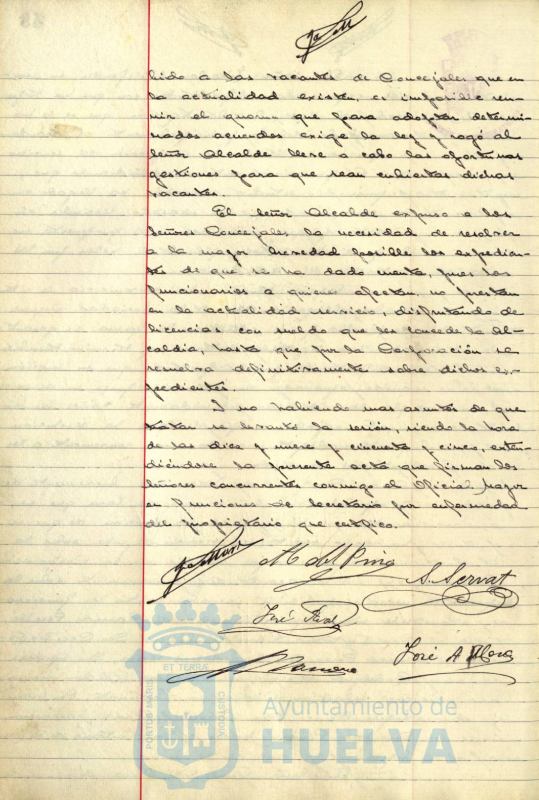 bido a las vacantes de Concejales que en
la actualidad existen, es imposible reu-
nir el quorum que para adoptar determi-
nados acuerdos exige la ley y rogó al
Señor Alcalde lleve a cabo las oportunas
gestiones para que sean cubiertas dichas
vacantes.
El Señor Alcalde expuso a los
Señores Concejales la necesidad de resolver
a la mayor brevedad posible los expedien-
tes de que se ha dado cuenta, pues los
funcionarios a quienes afectan, no prestan
en la actualidad servicio, disfrutando de
licencias con sueldo que les concede la Al-
caldia, hasta que por la Corporación se
resuelva definitivamente sobre dichos ex-
pedientes.
Y no habiendo mas asuntos de que
tratar se levantó la sesión, siendo la hora
de las diez y nueve y cincuenta y cinco, exten-
diéndose la presente acta que firman los
Señores concurrentes conmigo el Oficial Mayor
en funciones de Secretario por enfermedad
del propietario que certifico.
M. del Pino
S. Servat
José
José A
PORTUS MARIS
ET TERRÆ
CUSTODIA
Ayuntamiento de
HUELVA